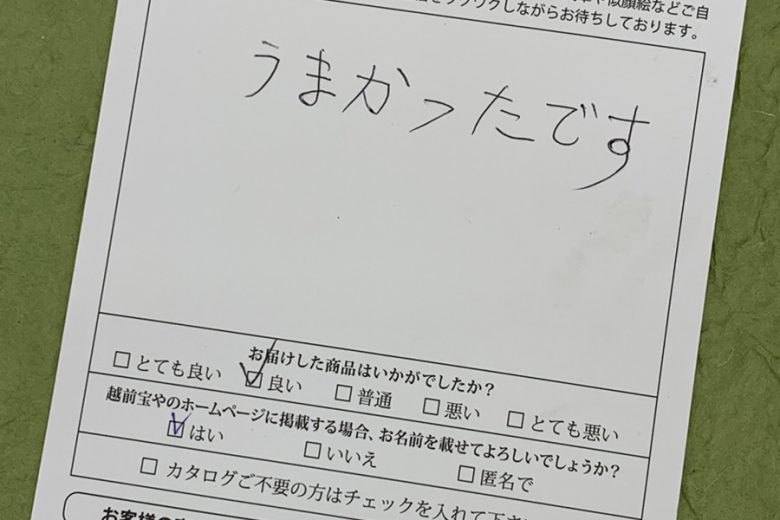 や似顔絵などご自
しながらお待ちしております。
うまかったです
お届けした商品はいかがでしたか？
☐ とても良い ☑ 良い ☐ 普通 ☐ 悪い ☐ とても悪い
越前宝やのホームページに掲載する場合、お名前を載せてよろしいでしょうか？
☑ はい ☐ いいえ ☐ 匿名で
☐ カタログご不要の方はチェックを入れて下さ
お客様の